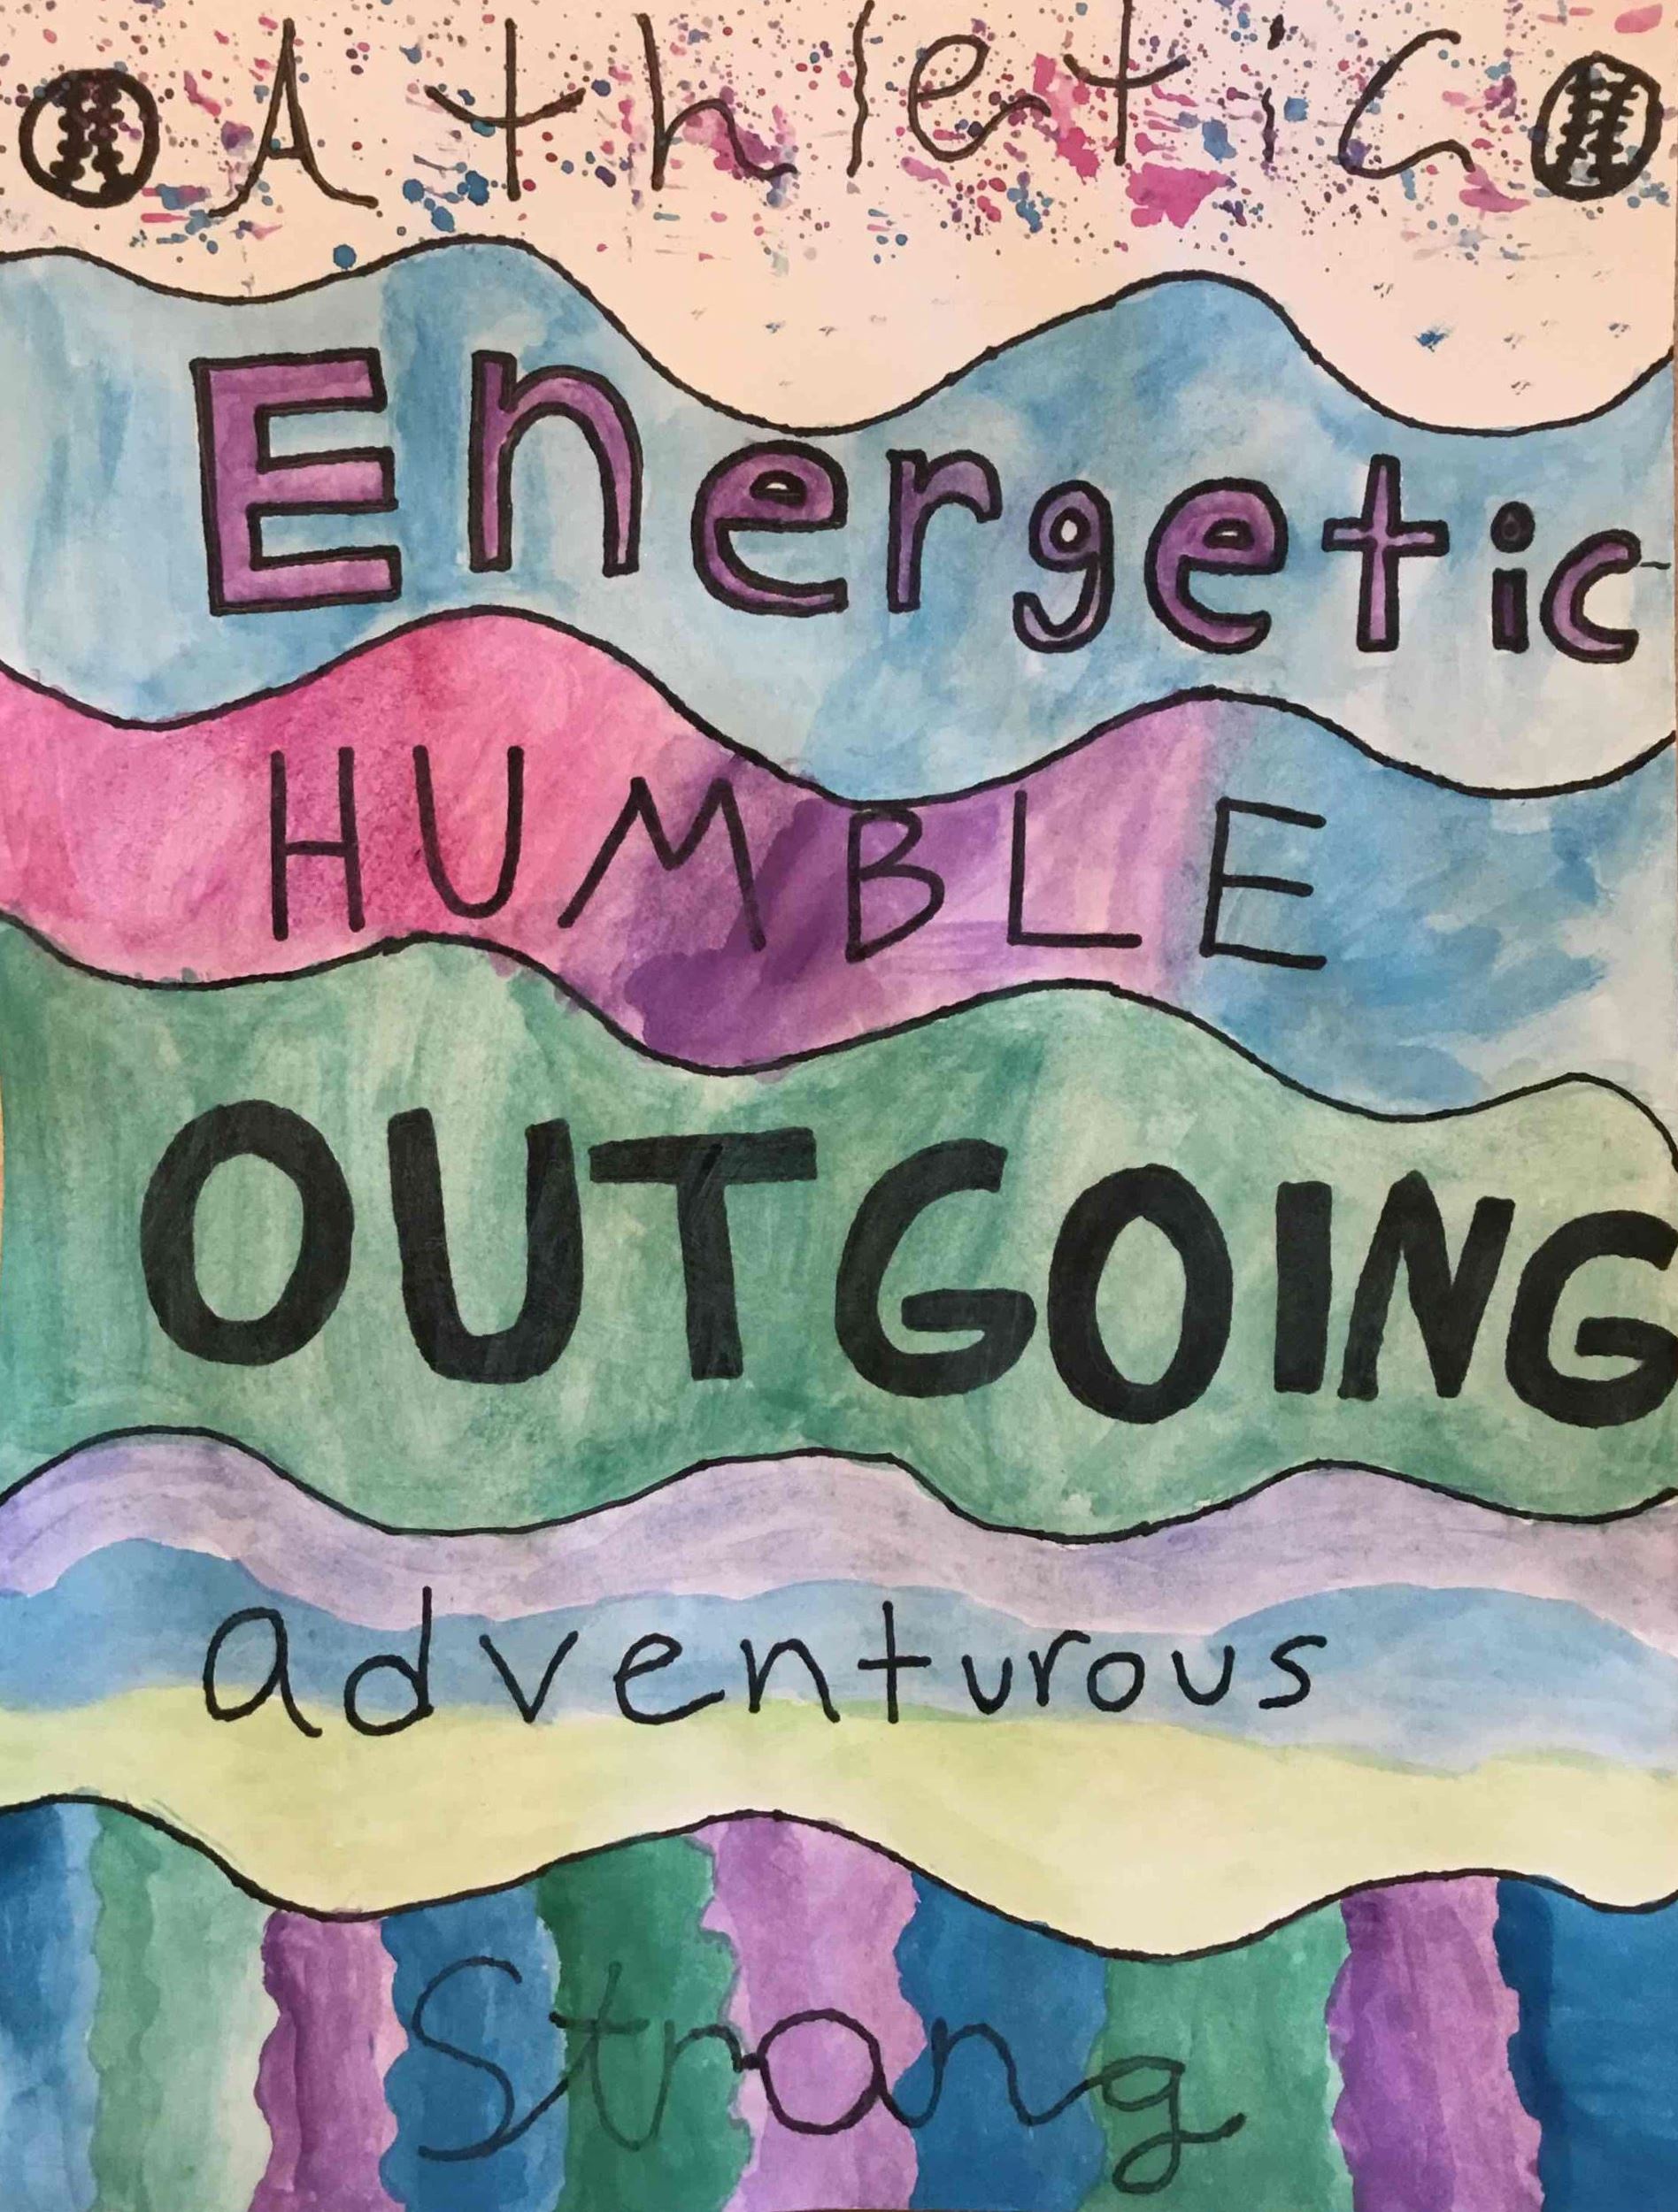 Athletic
Energetic
HUMBLE
OUTGOING
adventurous
Strong